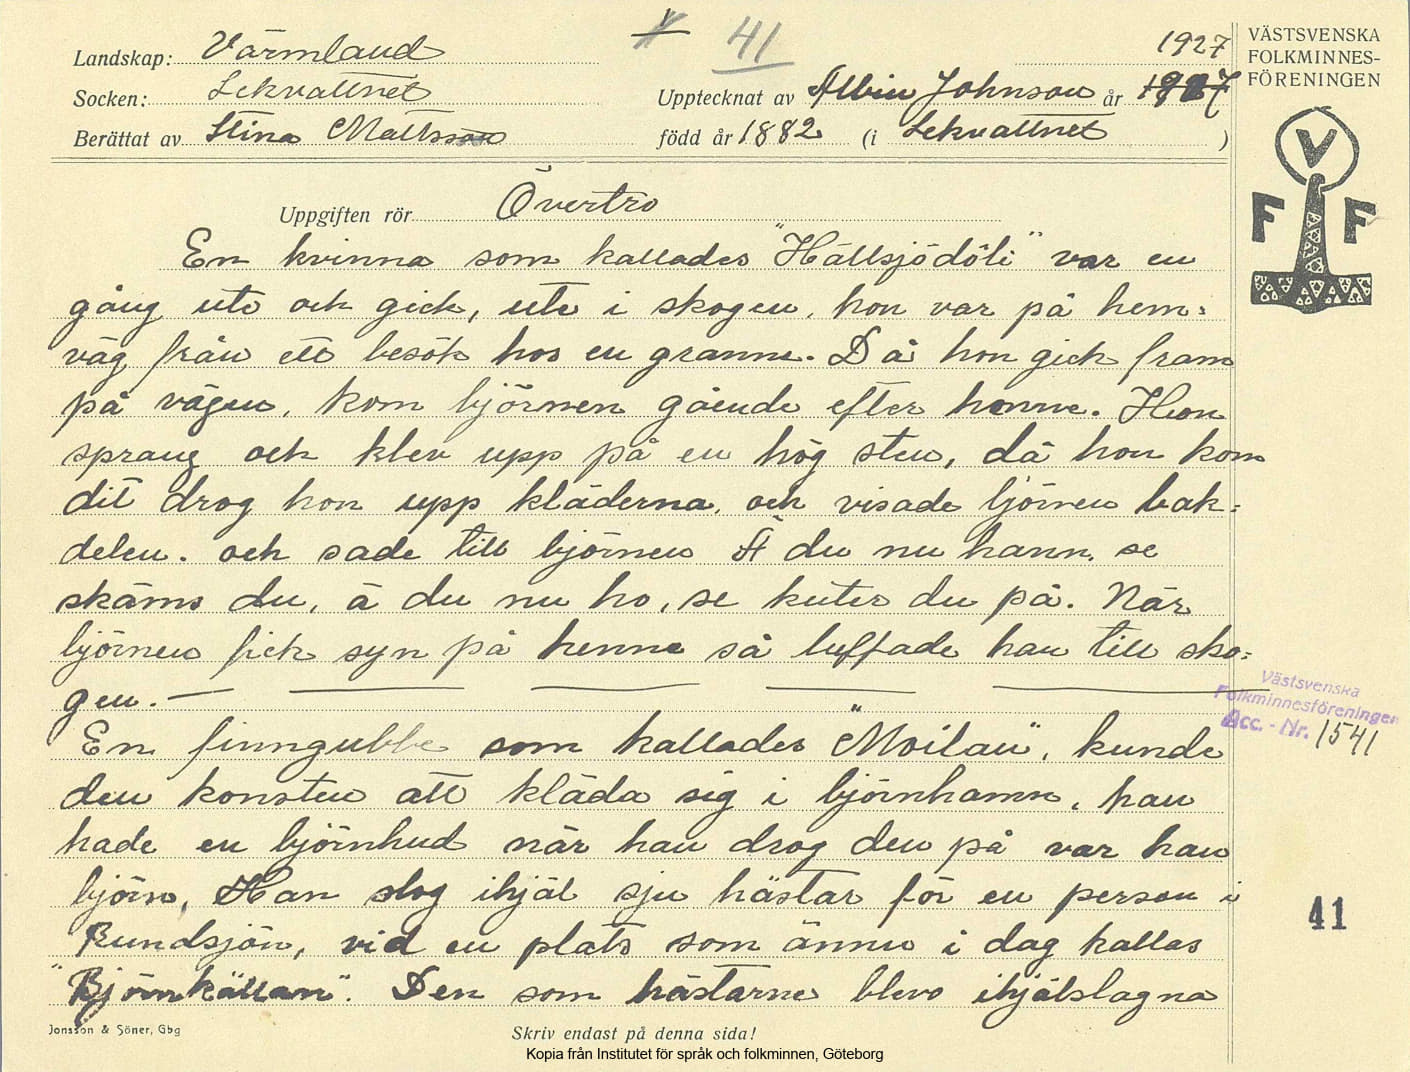 41
1927
VÄSTSVENSKA
FOLKMINNES-
FÖRENINGEN
Landskap: Värmland
Socken: Lekvattnet
Upptecknat av Albin Johnson år 1927
Berättat av Stina Mattsson
född år 1882 (i Lekvattnet )
V
F F
Uppgiften rör Övertro
En kvinna som kallades "Hällsjödöli" var en
gång ute och gick, ute i skogen, hon var på hem=
väg från ett besök hos en granne. Då hon gick fram
på vägen, kom björnen gående efter henne. Hon
sprang och klev upp på en hög sten, då hon kom
dit drog hon upp kläderna, och visade björnen bak=
delen. och sade till björnen Ä du nu hann, se
skäms du, ä du nu ho, se kuter du på. När
björnen fick syn på henne så luffade han till sko=
gen. —
En finngubbe som kallades "Moilan", kunde
den konsten att kläda sig i björnhamn, han
hade en björnhud när han drog den på var han
björn, Han slog ihjäl sju hästar för en person i
Rundsjön, vid en plats som ännu i dag kallas
"Björnkällan". Den som hästarne blevo ihjälslagna
Västsvenska
Folkminnesföreningen
Acc. - Nr. 1541
41
Jonsson & Söner, Gbg
Skriv endast på denna sida!
Kopia från Institutet för språk och folkminnen, Göteborg